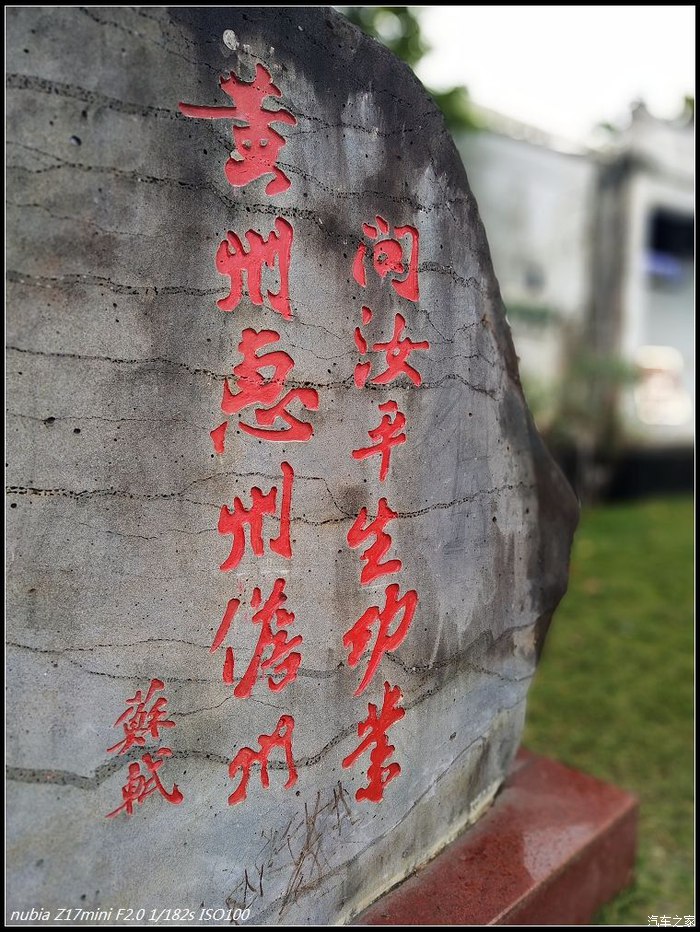 问汝平生功业
黄州惠州儋州
蘇軾
nubia Z17mini F2.0 1/182s ISO100
汽车之家